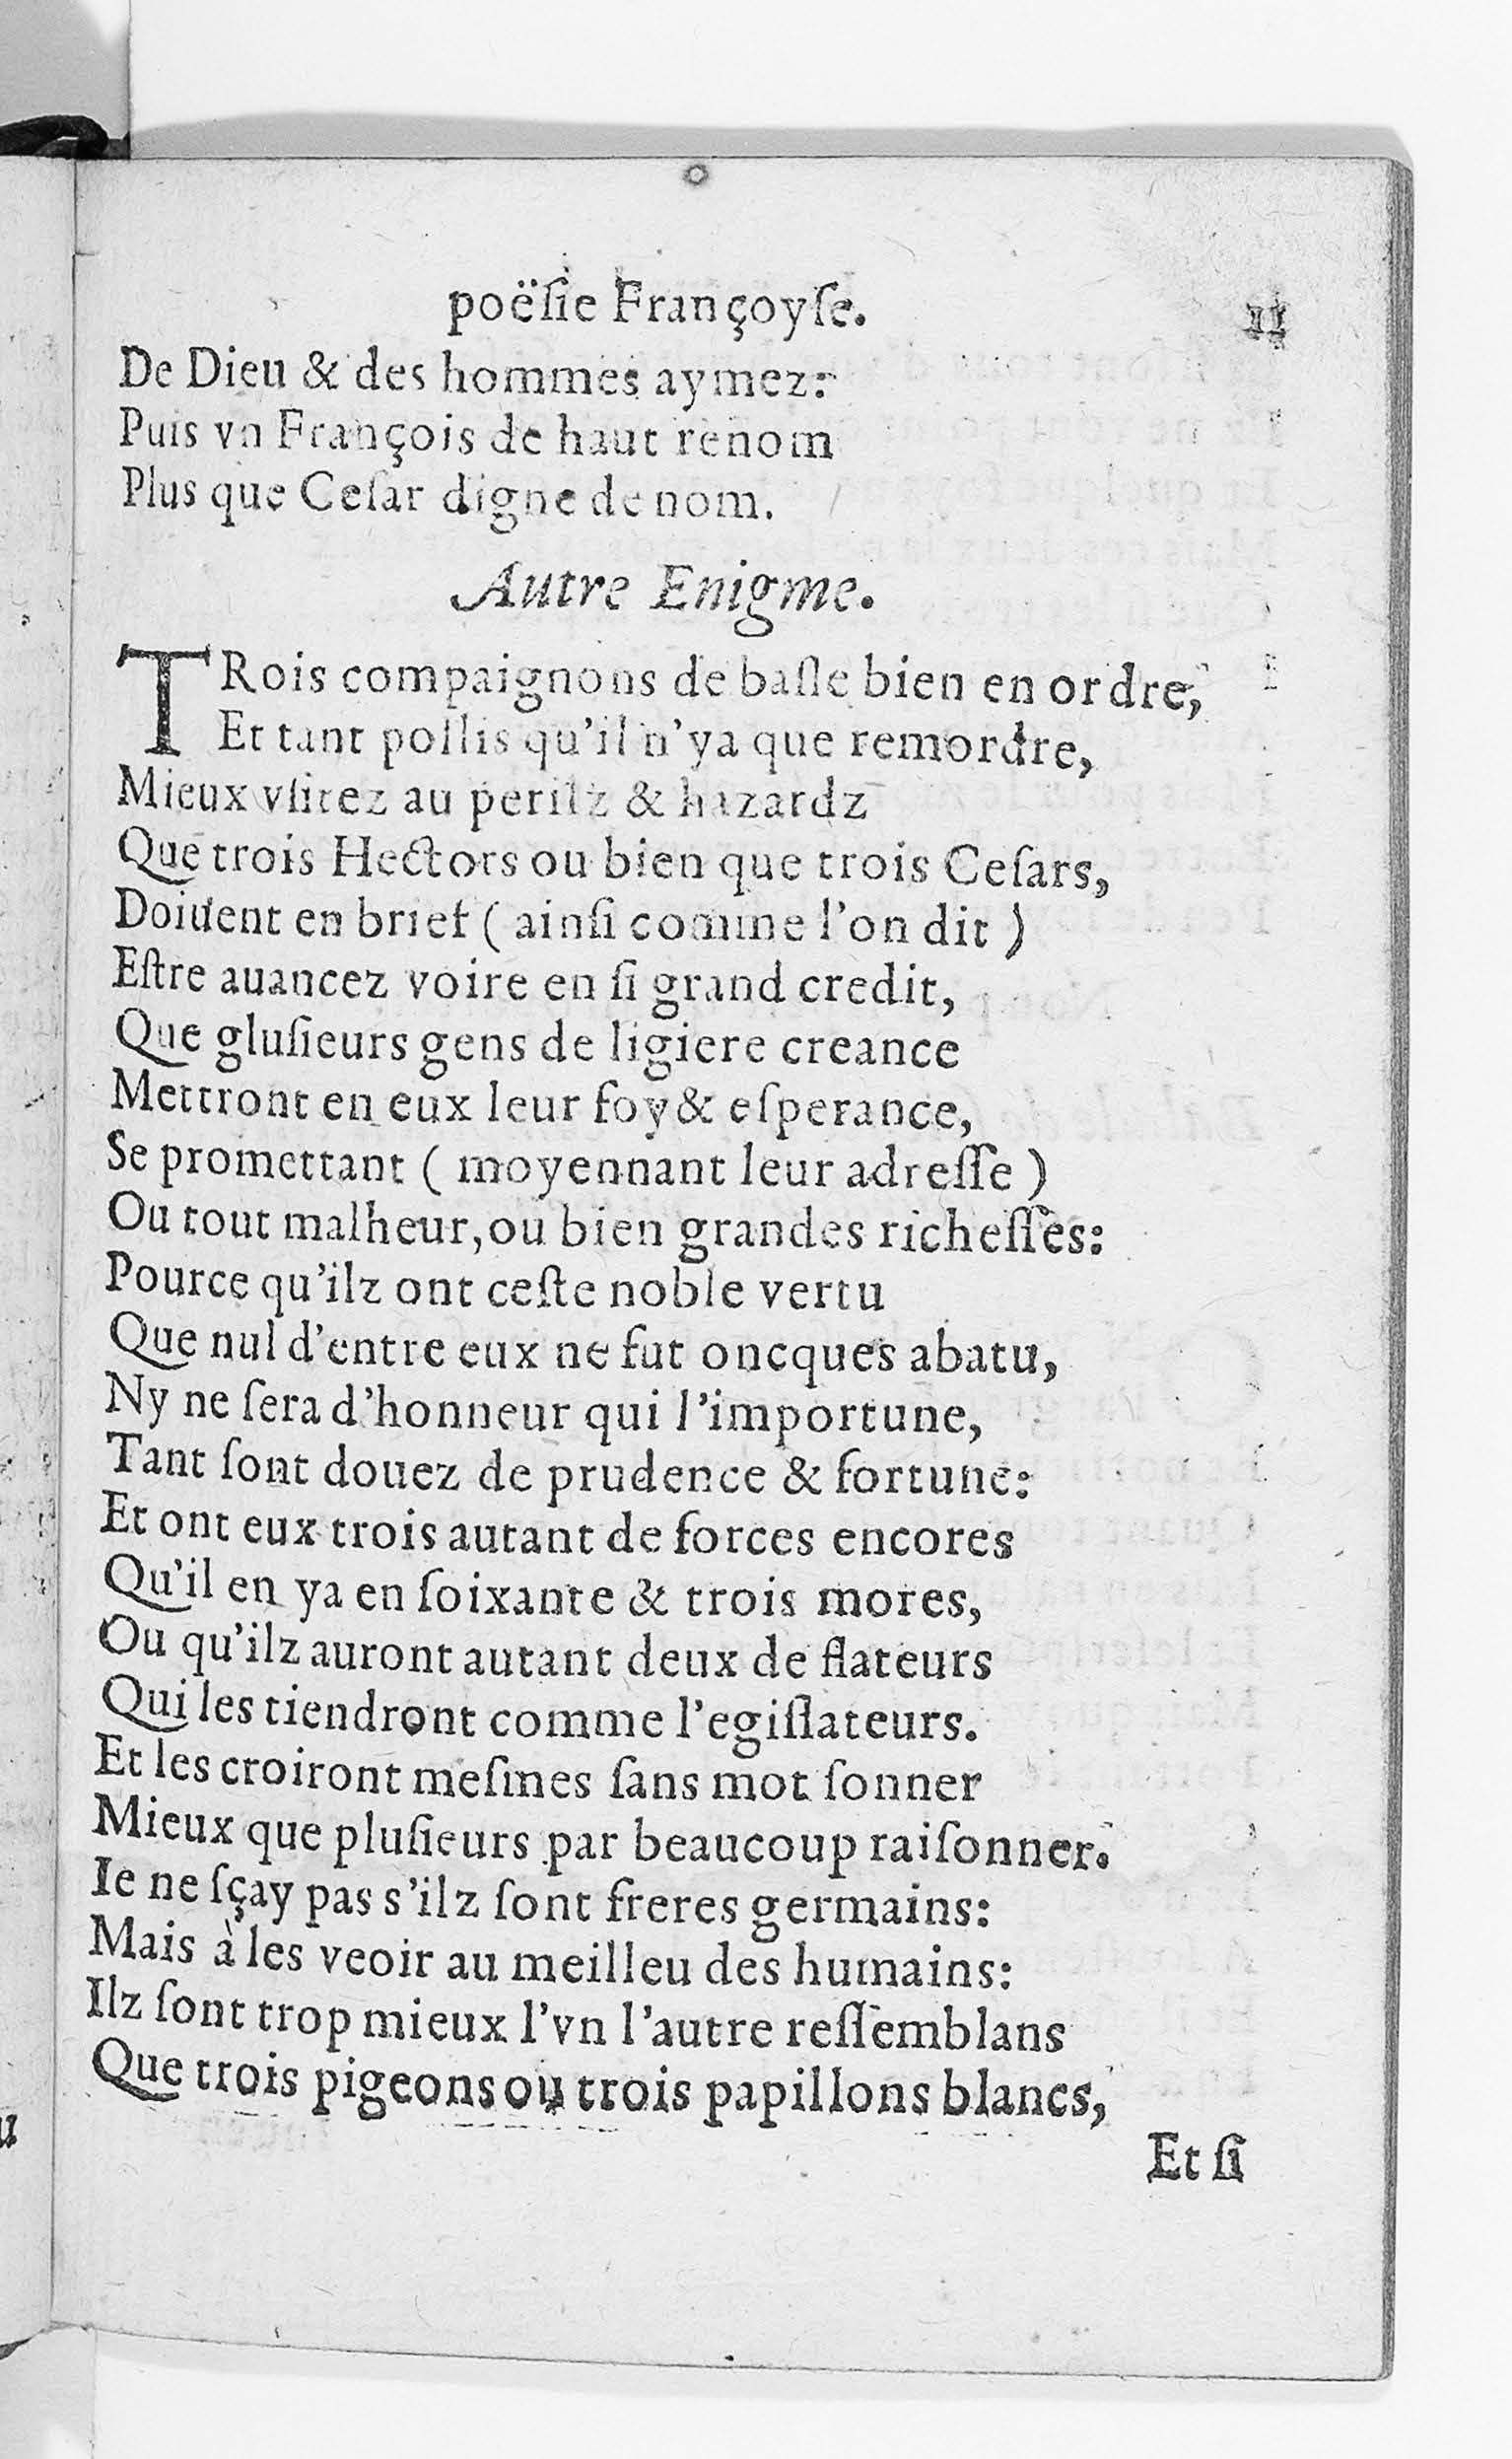 poëſie Françoyſe. 11
De Dieu & des hommes aymez:
Puis vn François de haut renom
Plus que Ceſar digne de nom.
Autre Enigme.
TRois compaignons de baſle bien en ordre,
Et tant pollis qu'il n'ya que remordre,
Mieux vſitez au perilz & hazardz
Que trois Hectors ou bien que trois Ceſars,
Doiuent en brief ( ainſi comme l'on dit )
Eſtre auancez voire en ſi grand credit,
Que gluſieurs gens de ligiere creance
Mettront en eux leur foy & eſperance,
Se promettant ( moyennant leur adreſſe )
Ou tout malheur, ou bien grandes richeſſes:
Pource qu'ilz ont ceſte noble vertu
Que nul d'entre eux ne fut oncques abatu,
Ny ne ſera d'honneur qui l'importune,
Tant ſont douez de prudence & fortune:
Et ont eux trois autant de forces encores
Qu'il en ya en ſoixante & trois mores,
Ou qu'ilz auront autant deux de flateurs
Qui les tiendront comme l'egiſlateurs.
Et les croiront meſmes ſans mot ſonner
Mieux que pluſieurs par beaucoup raiſonner.
Ie ne ſçay pas s'ilz ſont freres germains:
Mais à les veoir au meilleu des humains:
Ilz ſont trop mieux l'vn l'autre reſſemblans
Que trois pigeons ou trois papillons blancs,
Et ſi